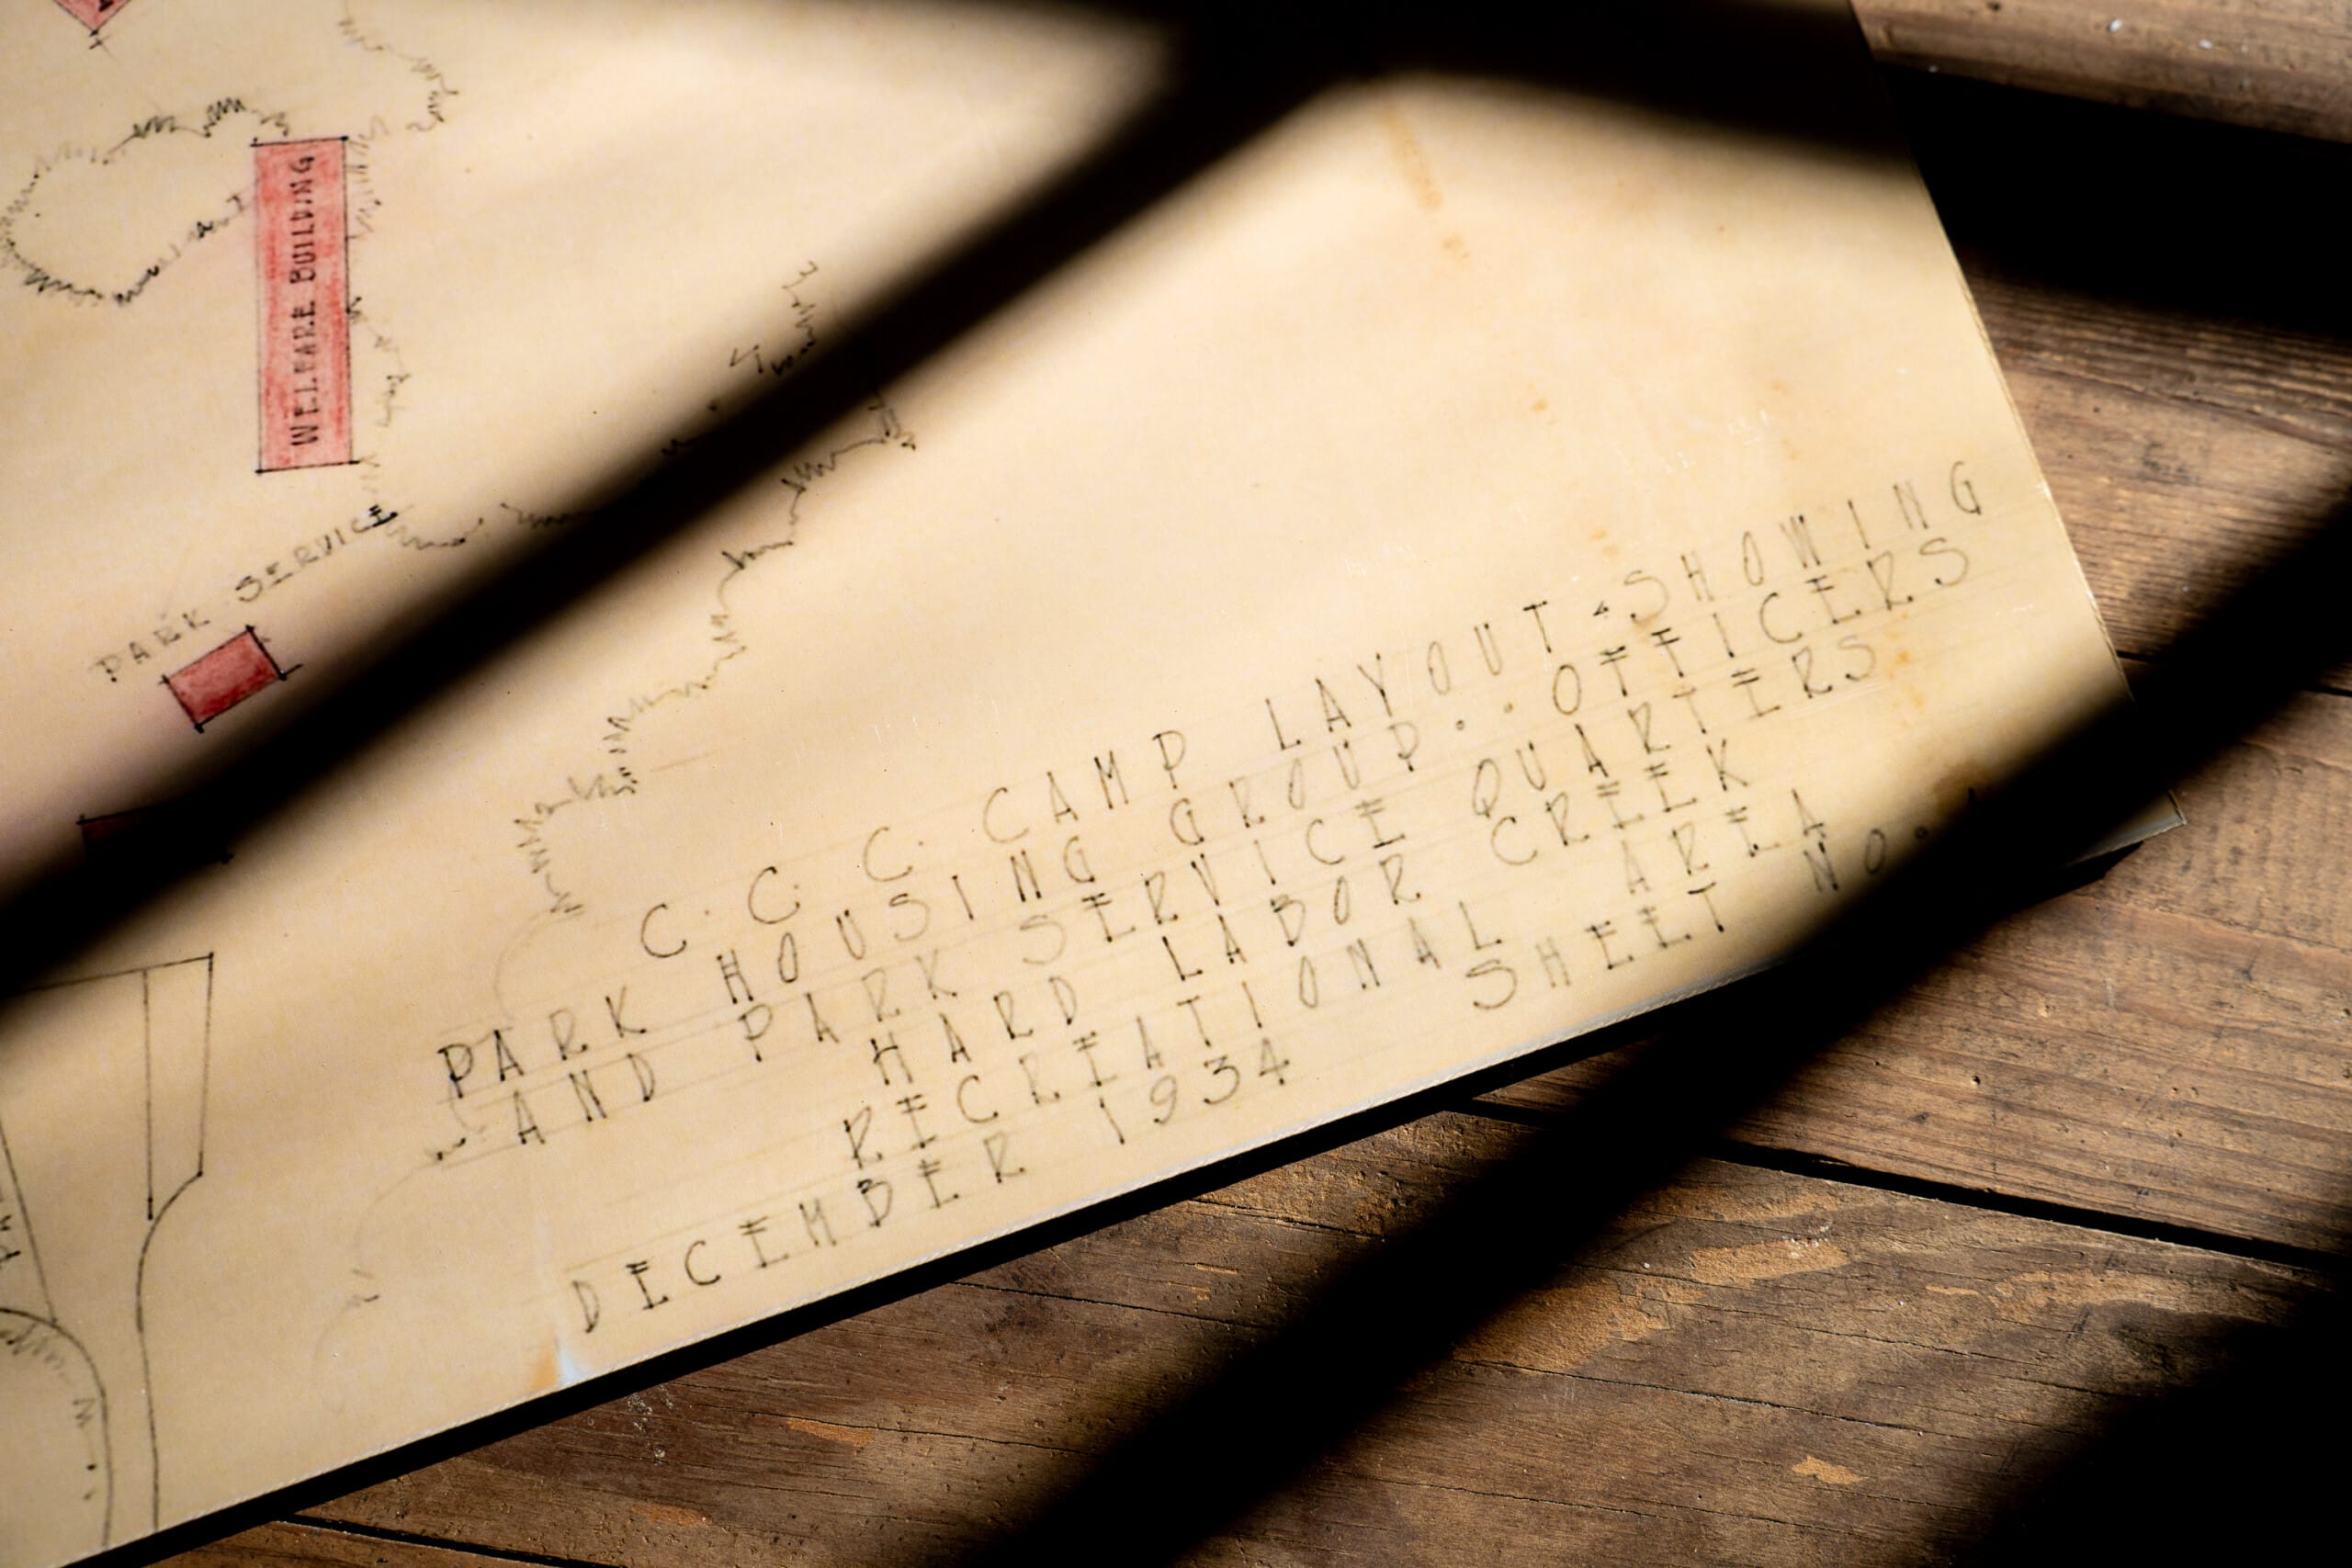 WELFARE BUILDING
PARK SERVICE
C. C. C. CAMP LAYOUT - SHOWING
PARK HOUSING GROUP.. OFFICERS
AND PARK SERVICE QUARTERS
HARD LABOR CREEK
RECREATIONAL AREA
DECEMBER 1934 SHEET NO.